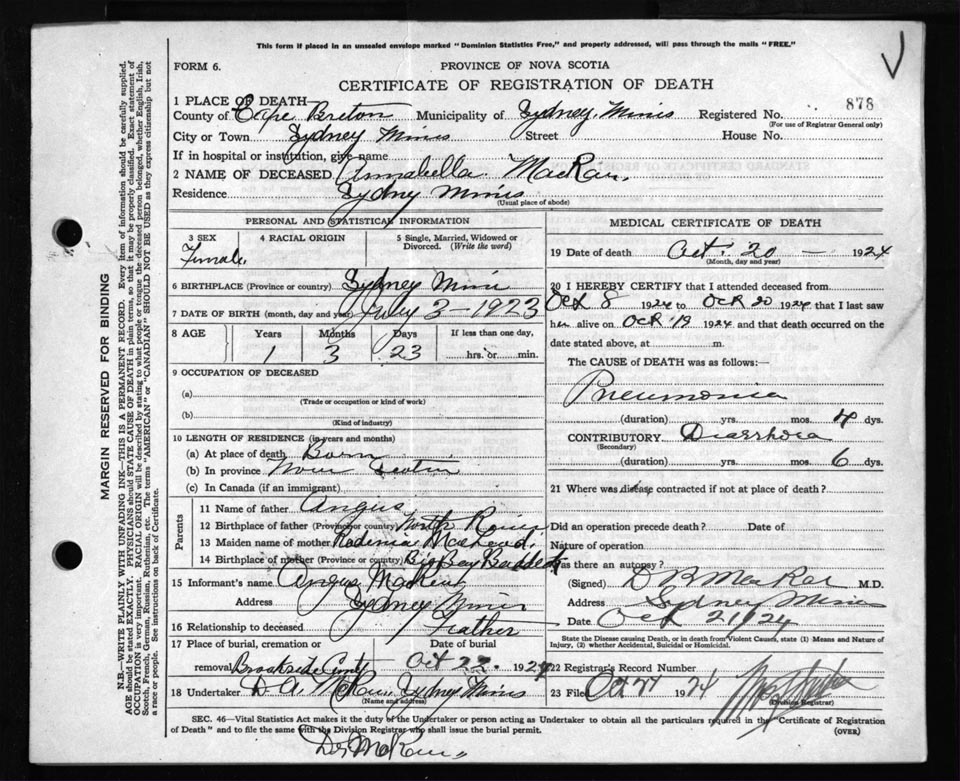 This form if placed in an unsealed envelope marked "Dominion Statistics Free," and properly addressed, will pass through the mails "FREE."
FORM 6.
PROVINCE OF NOVA SCOTIA
CERTIFICATE OF REGISTRATION OF DEATH
1 PLACE OF DEATH
County of Cape Breton Municipality of Sydney Mines Registered No. 878
(For use of Registrar General only)
City or Town Sydney Mines Street House No.
If in hospital or institution, give name
2 NAME OF DECEASED Annabella
Residence Sydney Mines
(Usual place of abode)
PERSONAL AND STATISTICAL INFORMATION
3 SEX 4 RACIAL ORIGIN 5 Single, Married, Widowed or Divorced. (Write the word)
Female
6 BIRTHPLACE (Province or country) Sydney Mines
7 DATE OF BIRTH (month, day and year) July 3 - 1923
8 AGE Years Months Days If less than one day,
1 3 23 hrs. or min.
9 OCCUPATION OF DECEASED
(a)
(Trade or occupation or kind of work)
(b)
(Kind of industry)
10 LENGTH OF RESIDENCE (in years and months)
(a) At place of death Born
(b) In province Nova Scotia
(c) In Canada (if an immigrant)
Parents
11 Name of father Angus
12 Birthplace of father (Province or country) North River
13 Maiden name of mother MacLeod
14 Birthplace of mother (Province or country) Big Bay Baddeck
15 Informant's name Angus
Address Sydney Mines
16 Relationship to deceased Feather
17 Place of burial, cremation or removal Brookside Date of burial Oct 22. 1924
18 Undertaker D. A. Sydney Mines
(Name and address)
MEDICAL CERTIFICATE OF DEATH
19 Date of death Oct. 20 - 1924
(Month, day and year)
20 I HEREBY CERTIFY that I attended deceased from
Oct 8 1924 to Oct 20 1924 that I last saw
her alive on Oct 19 1924 and that death occurred on the
date stated above, at m.
The CAUSE of DEATH was as follows:—
Pneumonia
(duration) yrs. mos. 4 dys.
CONTRIBUTORY Diarrhoea
(Secondary)
(duration) yrs. mos. 6 dys.
21 Where was disease contracted if not at place of death?
Did an operation precede death? Date of
Nature of operation
Was there an autopsy?
(Signed) M.D.
Address Sydney Mines
Date Oct 21/24
State the Disease causing Death, or in death from Violent Causes, state (1) Means and Nature of Injury, (2) whether Accidental, Suicidal or Homicidal.
22 Registrar's Record Number
23 Filed Oct 1924
(Division Registrar)
SEC. 46—Vital Statistics Act makes it the duty of the Undertaker or person acting as Undertaker to obtain all the particulars required in the "Certificate of Registration
of Death" and to file the same with the Division Registrar who shall issue the burial permit.
(OVER)
MARGIN RESERVED FOR BINDING
N.B.—WRITE PLAINLY WITH UNFADING INK—THIS IS A PERMANENT RECORD. Every item of information should be carefully supplied.
AGE should be stated EXACTLY. PHYSICIANS should STATE CAUSE OF DEATH in plain terms, so that it may be properly classified. Exact statement of
OCCUPATION is very important. RACIAL ORIGIN will be described by stating to what people or tongue the deceased person belonged, whether English, Irish,
Scotch, French, German, Russian, Ruthenian, etc. The terms "AMERICAN" or "CANADIAN" SHOULD NOT BE USED as they express citizenship but not
a race or people. See instructions on back of Certificate.